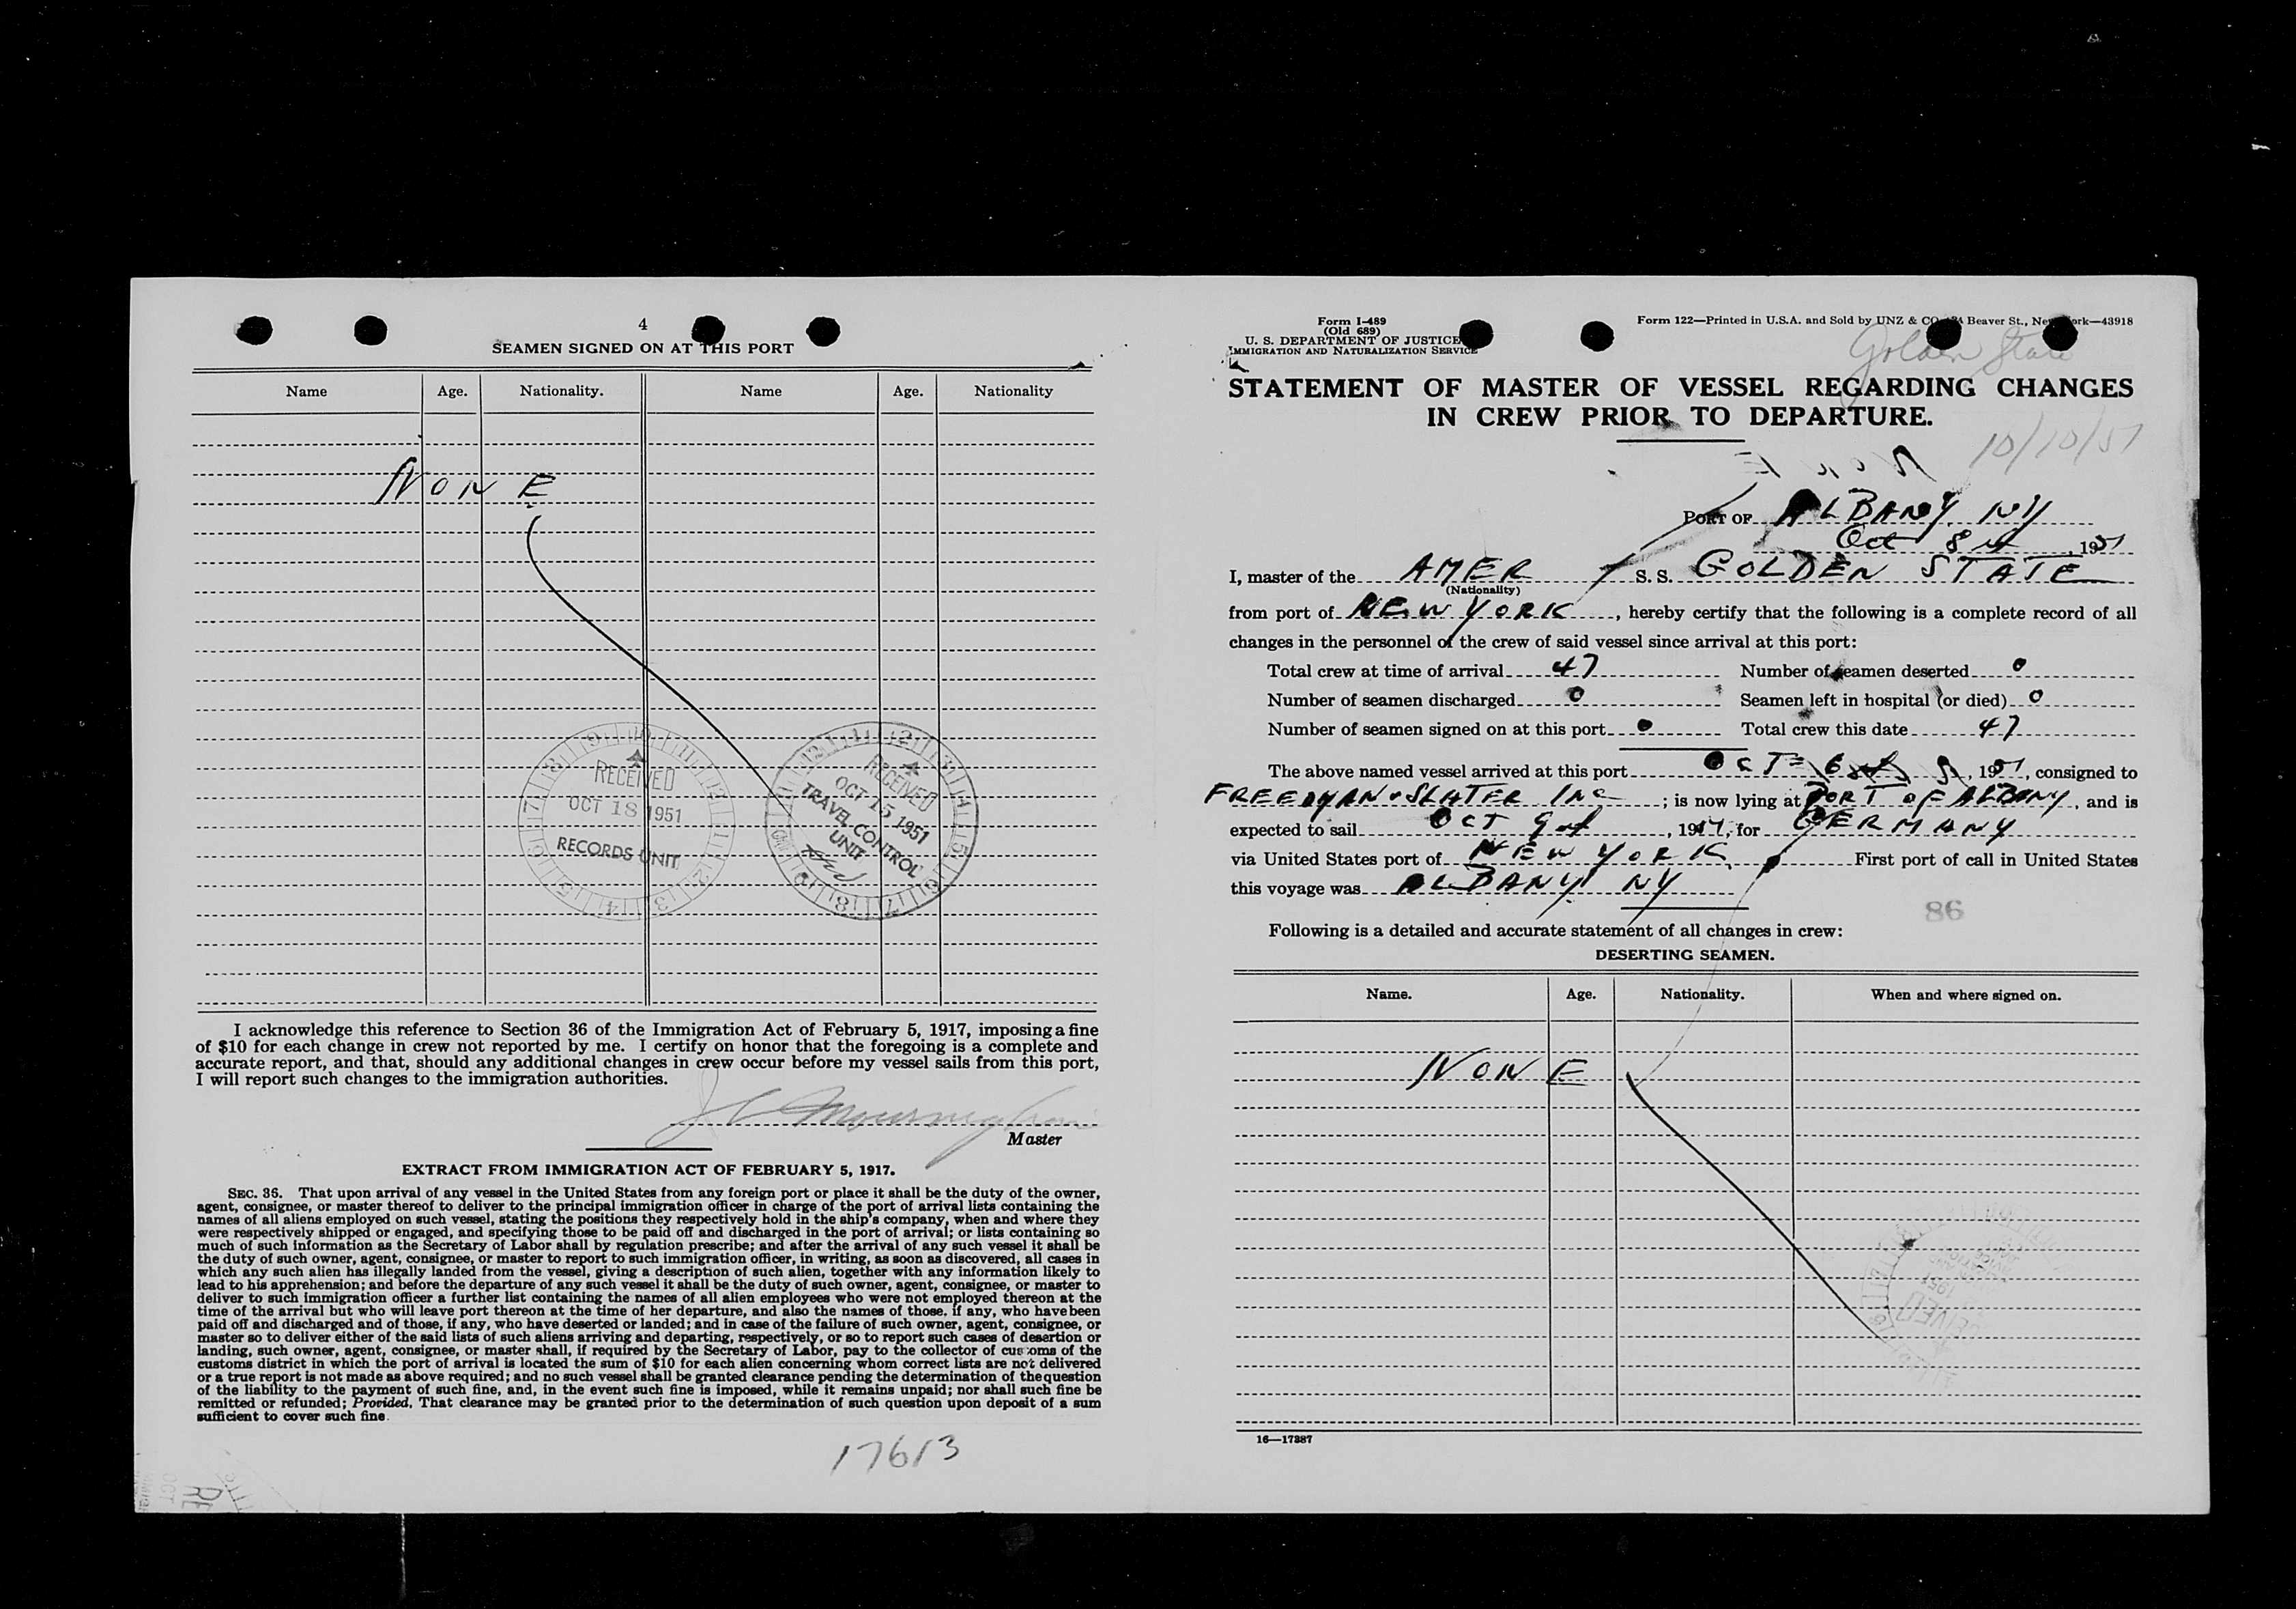 4
SEAMEN SIGNED ON AT THIS PORT
Name Age. Nationality. Name Age. Nationality
NONE
RECEIVED
OCT 18 1951
RECORDS UNIT
RECEIVED
OCT 15 1951
TRAVEL CONTROL
UNIT
I acknowledge this reference to Section 36 of the Immigration Act of February 5, 1917, imposing a fine
of $10 for each change in crew not reported by me. I certify on honor that the foregoing is a complete and
accurate report, and that, should any additional changes in crew occur before my vessel sails from this port,
I will report such changes to the immigration authorities.
Master
EXTRACT FROM IMMIGRATION ACT OF FEBRUARY 5, 1917.
SEC. 36. That upon arrival of any vessel in the United States from any foreign port or place it shall be the duty of the owner,
agent, consignee, or master thereof to deliver to the principal immigration officer in charge of the port of arrival lists containing the
names of all aliens employed on such vessel, stating the positions they respectively hold in the ship's company, when and where they
were respectively shipped or engaged, and specifying those to be paid off and discharged in the port of arrival; or lists containing so
much of such information as the Secretary of Labor shall by regulation prescribe; and after the arrival of any such vessel it shall be
the duty of such owner, agent, consignee, or master to report to such immigration officer, in writing, as soon as discovered, all cases in
which any such alien has illegally landed from the vessel, giving a description of such alien, together with any information likely to
lead to his apprehension; and before the departure of any such vessel it shall be the duty of such owner, agent, consignee, or master to
deliver to such immigration officer a further list containing the names of all alien employees who were not employed thereon at the
time of the arrival but who will leave port thereon at the time of her departure, and also the names of those, if any, who have been
paid off and discharged and of those, if any, who have deserted or landed; and in case of the failure of such owner, agent, consignee, or
master so to deliver either of the said lists of such aliens arriving and departing, respectively, or so to report such cases of desertion or
landing, such owner, agent, consignee, or master shall, if required by the Secretary of Labor, pay to the collector of customs of the
customs district in which the port of arrival is located the sum of $10 for each alien concerning whom correct lists are not delivered
or a true report is not made as above required; and no such vessel shall be granted clearance pending the determination of the question
of the liability to the payment of such fine, and, in the event such fine is imposed, while it remains unpaid; nor shall such fine be
remitted or refunded; Provided, That clearance may be granted prior to the determination of such question upon deposit of a sum
sufficient to cover such fine.
17613
Form I-489
(Old 689)
U. S. DEPARTMENT OF JUSTICE
IMMIGRATION AND NATURALIZATION SERVICE
Form 122—Printed in U.S.A. and Sold by UNZ & CO Beaver St., New York—43918
Golden State
STATEMENT OF MASTER OF VESSEL REGARDING CHANGES
IN CREW PRIOR TO DEPARTURE.
10/10/51
PORT OF ALBANY NY
Oct 8, 1951
I, master of the AMER S. S. GOLDEN STATE
(Nationality)
from port of NEW YORK, hereby certify that the following is a complete record of all
changes in the personnel of the crew of said vessel since arrival at this port:
Total crew at time of arrival 47 Number of seamen deserted 0
Number of seamen discharged 0 Seamen left in hospital (or died) 0
Number of seamen signed on at this port 0 Total crew this date 47
The above named vessel arrived at this port OCT 6, 1951, consigned to
FREEDMAN & SLATER INC; is now lying at PORT OF ALBANY, and is
expected to sail OCT 9, 19, for GERMANY
via United States port of NEW YORK. First port of call in United States
this voyage was ALBANY NY
86
Following is a detailed and accurate statement of all changes in crew:
DESERTING SEAMEN.
Name. Age. Nationality. When and where signed on.
NONE
16—17387